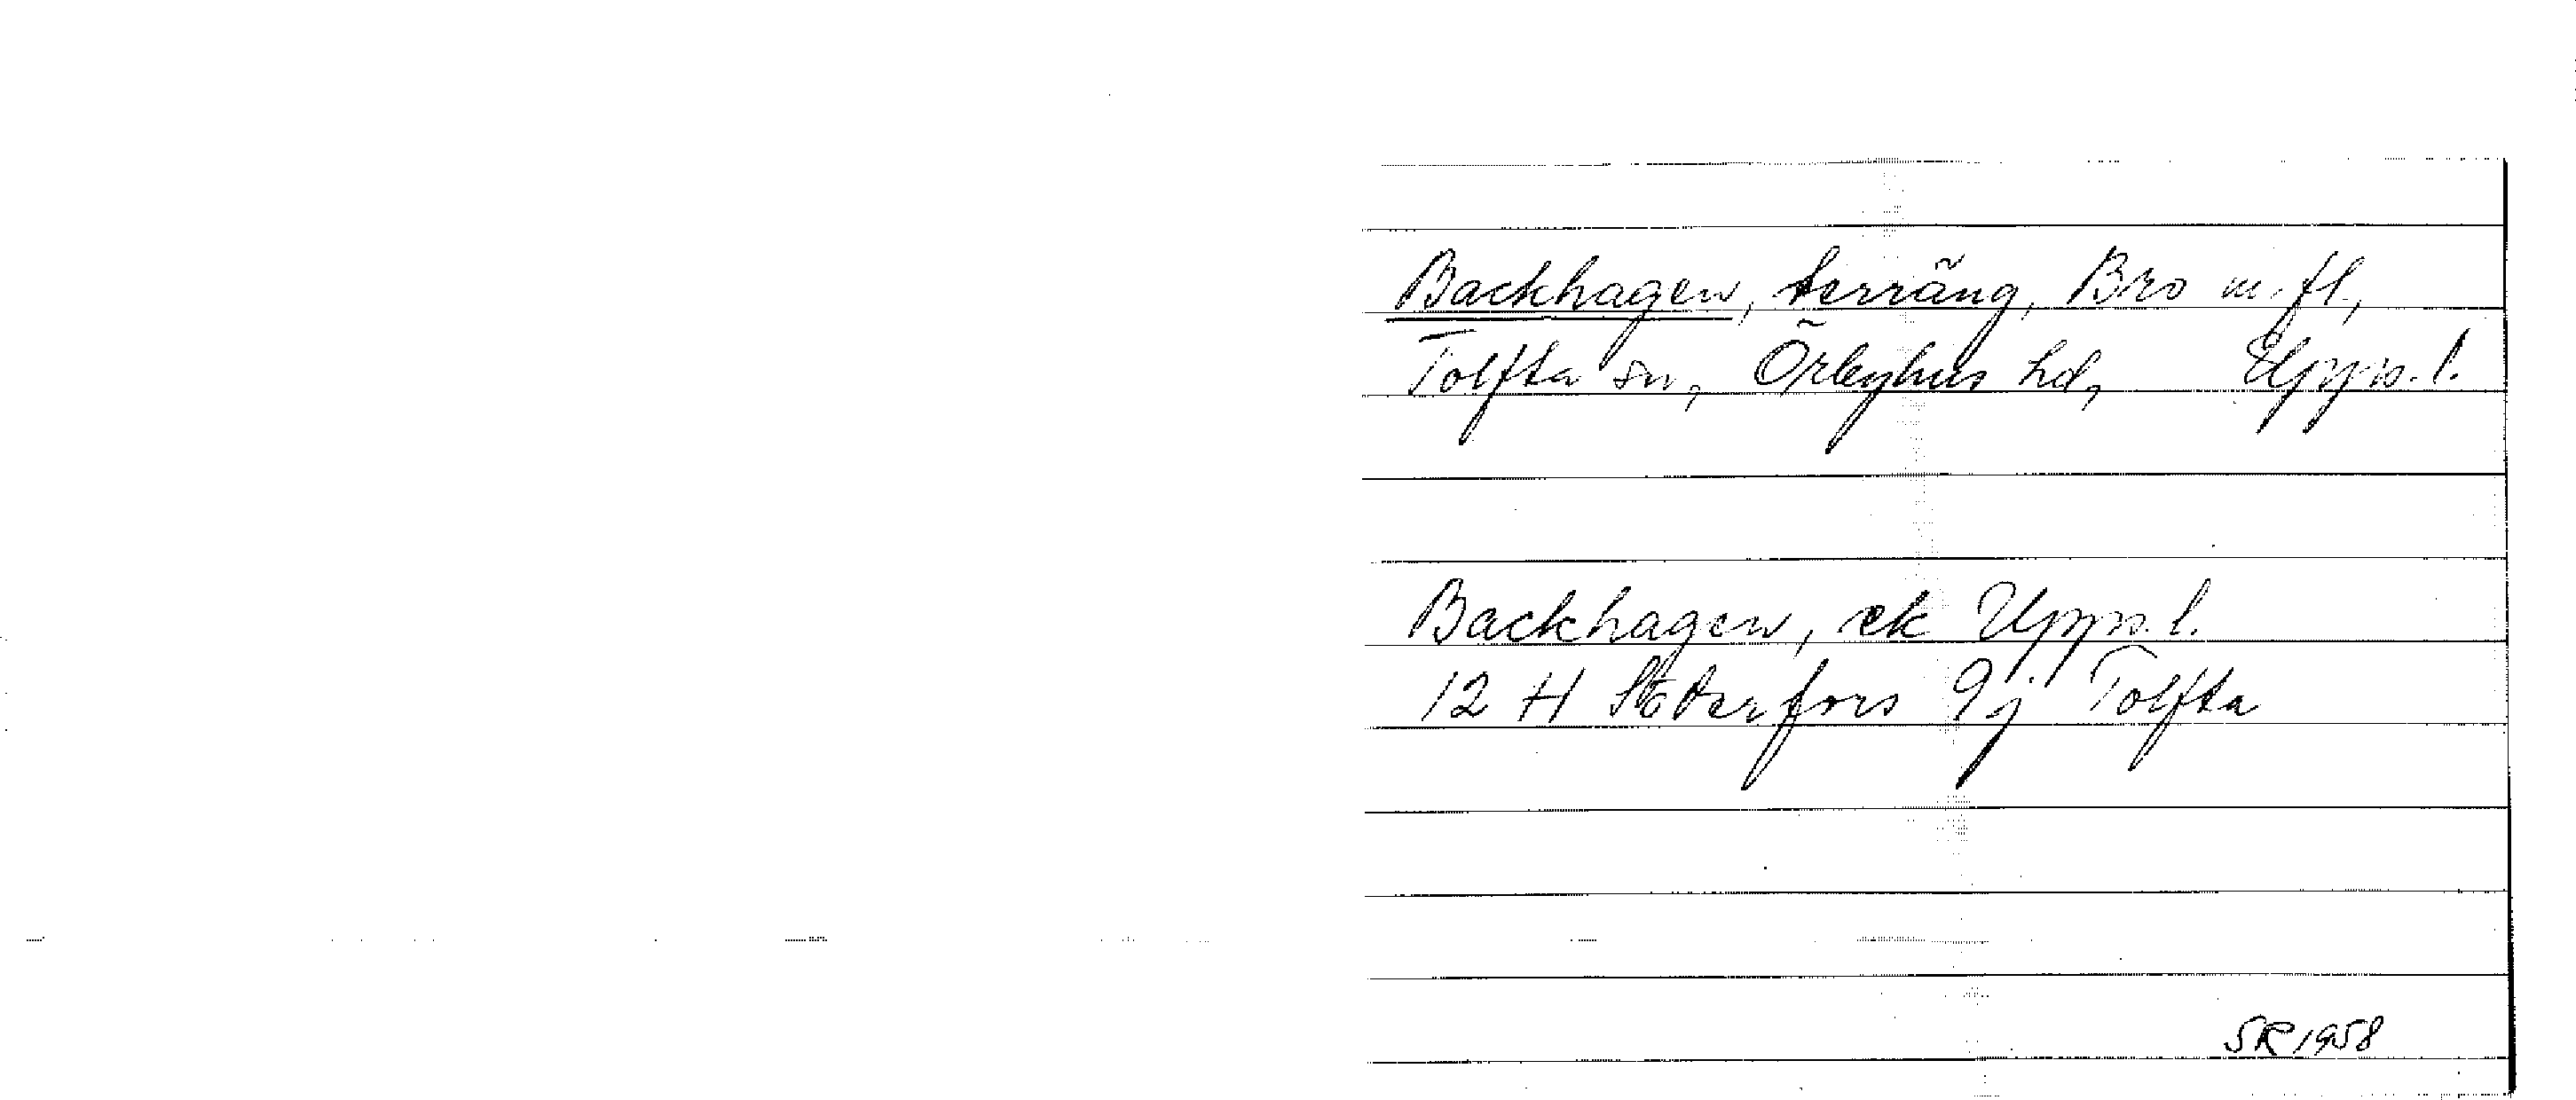 Backhagen, terräng, Bro m. fl.,
Tolfta sn, Örbyhus hd, Upps. l.
Backhagen, ek Upps. l.
12 H Söderfors 9j Tolfta
SR 1958